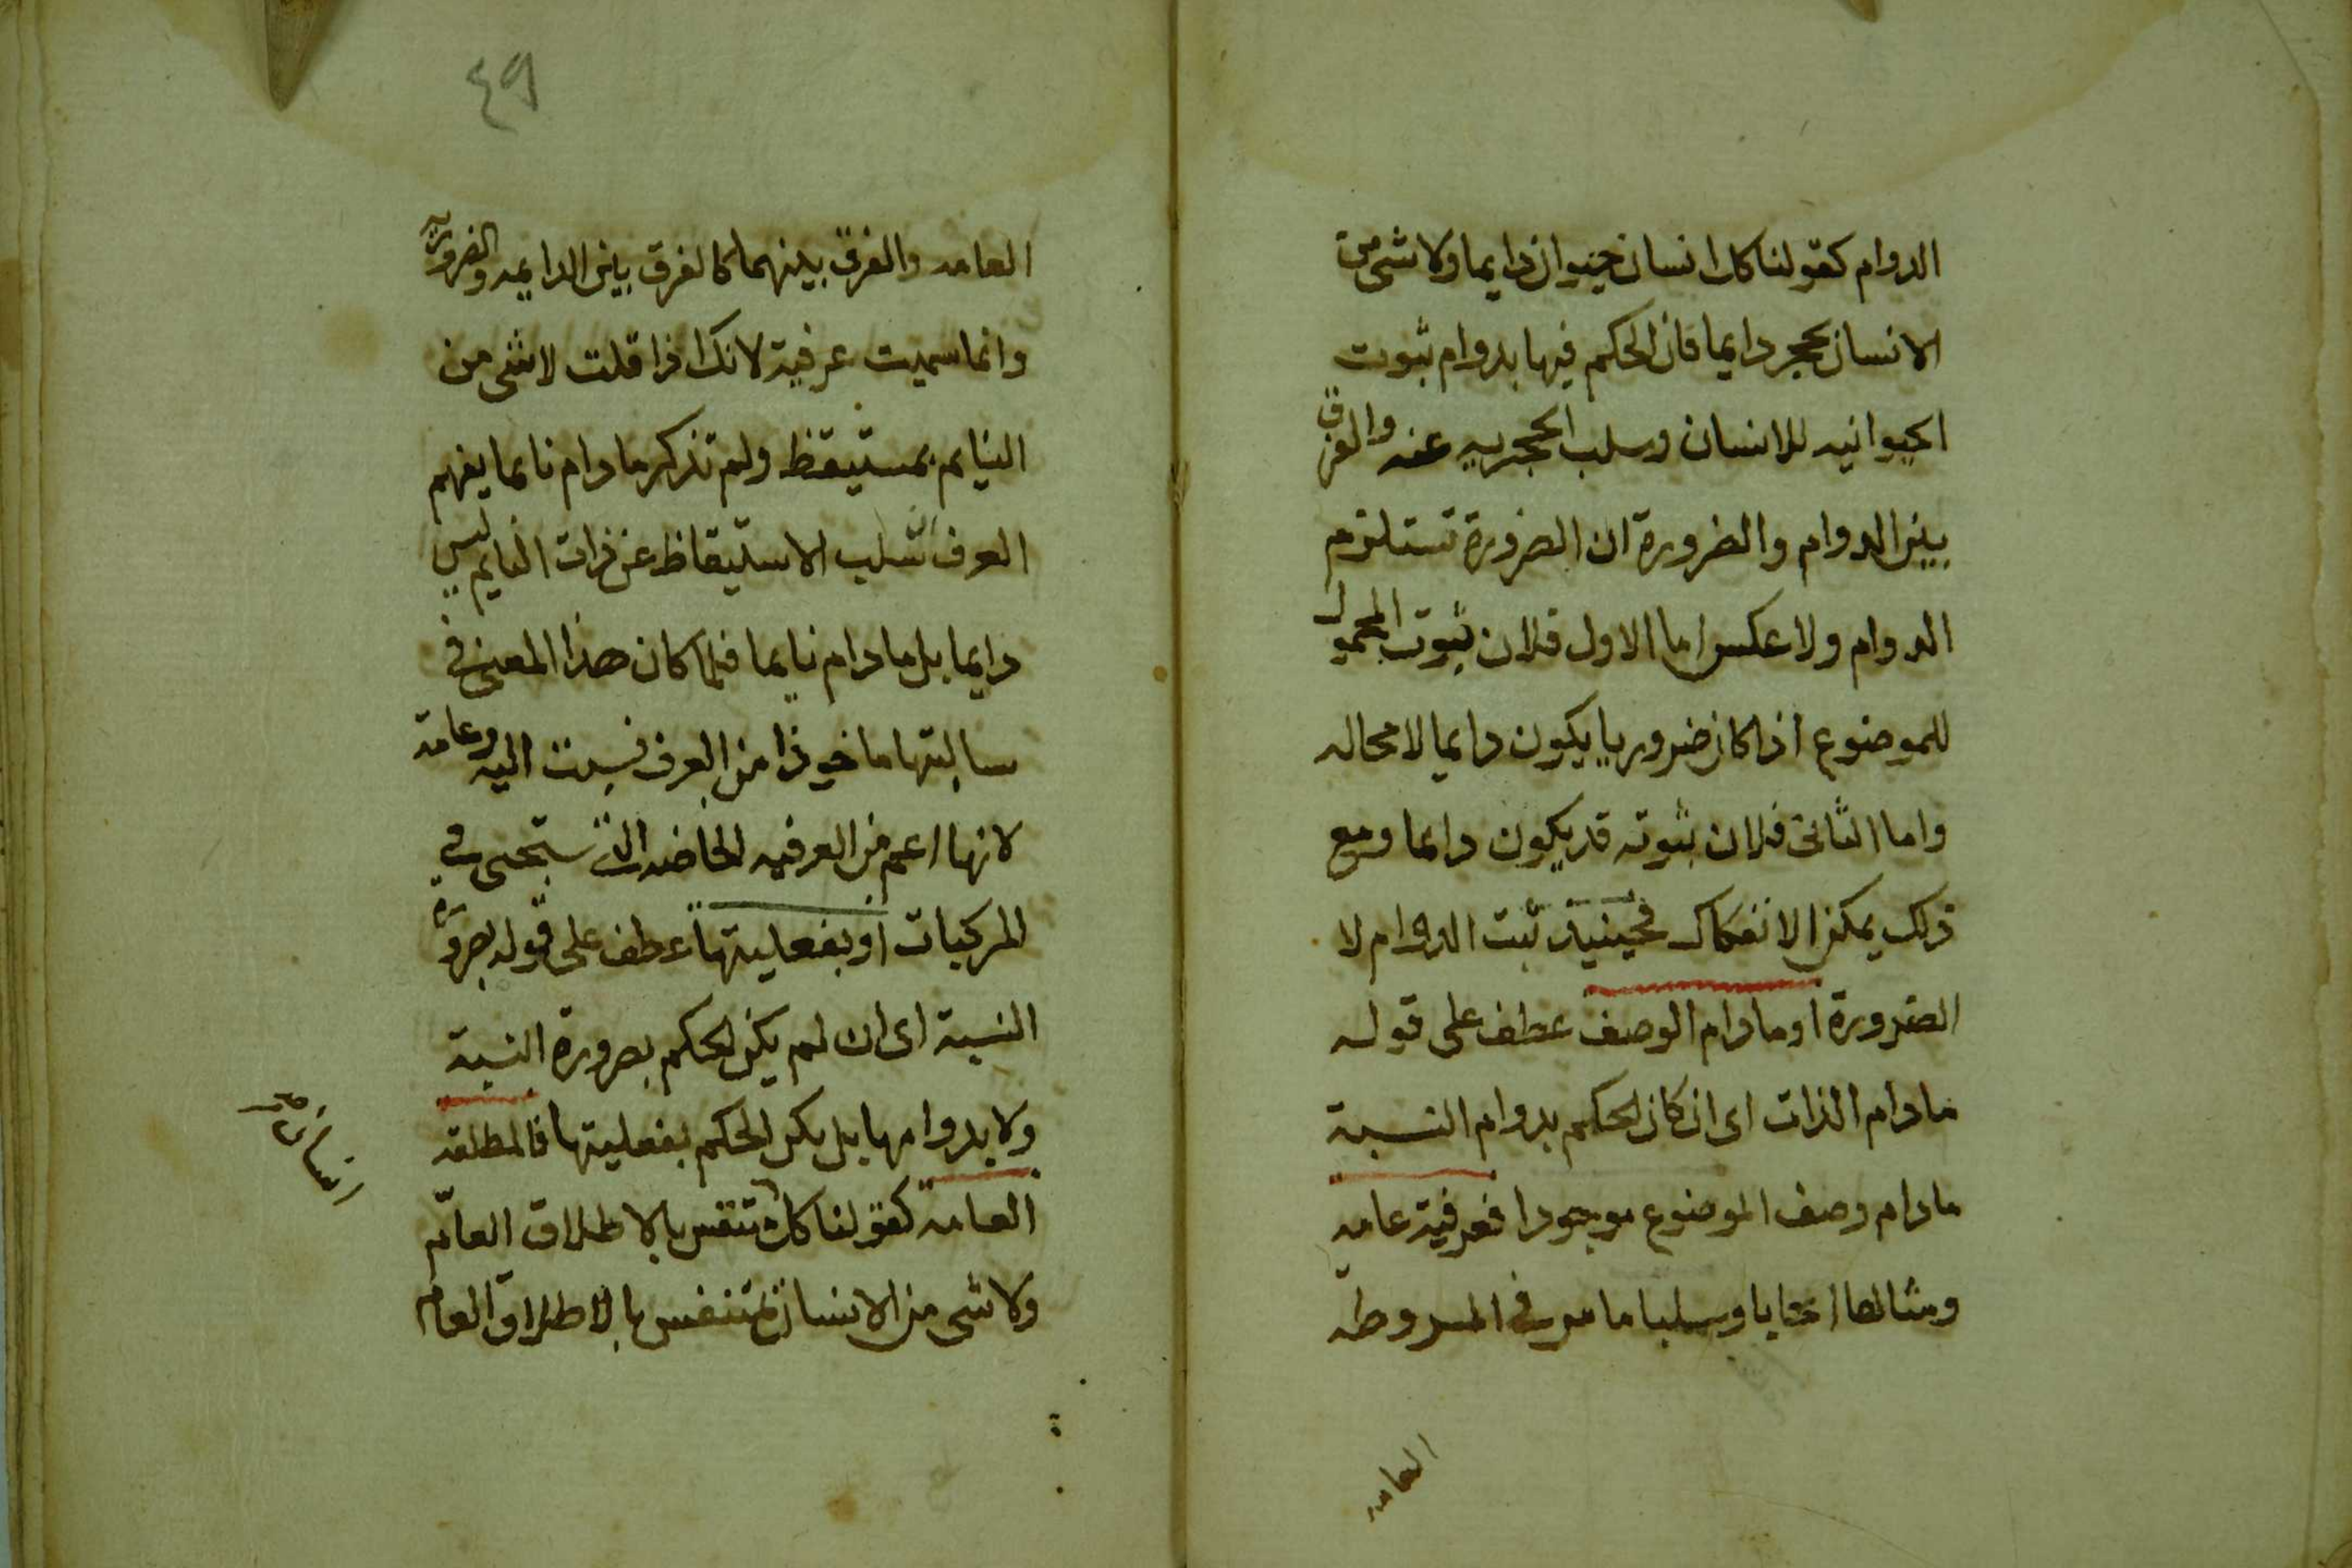 الدوام كقولنا كل انسان حيوان دايما ولا شى من
الانسان بحجر دايما فان الحكم فيها بدوام ثبوت
الحيوانيه للانسان وسلب الحجريه عنه والفرق
بين الدوام والضرورة ان الضرورة تستلزم
الدوام ولا عكس اما الاول فلان ثبوت المحمول
للموضوع اذا كان ضروريا يكون دايما لا محاله
واما الثانى فلان ثبوته قد يكون دايما ومع
ذلك يمكن الانفكاك فحينيذ ثبت الدوام لا
الضرورة او مادام الوصف عطف على قوله
مادام الذات اى ان كان الحكم بدوام النسبة
مادام وصف الموضوع موجودا فعرفية عامه
ومثالها ايجابا وسلبا ما مر فى المشروطه
العامه
٤٩
العامه والفرق بينهما كالفرق بين الدايمه والضروريه
وانما سميت عرفية لانك اذا قلت لا شى من
النايم بمستيقظ ولم تذكر مادام نايما يفهم
العرف سلب الاستيقاظ عن ذات النايم ليس
دايما بل مادام نايما فلما كان هذا المعنى فى
سالبتها ماخوذا من العرف نسبت اليه وعامه
لانها اعم من العرفيه الخاصه التى ستجى فى
المركبات او بفعليتها عطف على قوله بضرورة
النسبة اى ان لم يكن الحكم بضرورة النسبة
ولا بدوامها بل يكن الحكم بفعليتها فالمطلقه
العامه كقولنا كل متنفس بالاطلاق العام
انسان صح
ولا شى من الانسان بمتنفس بالاطلاق العام